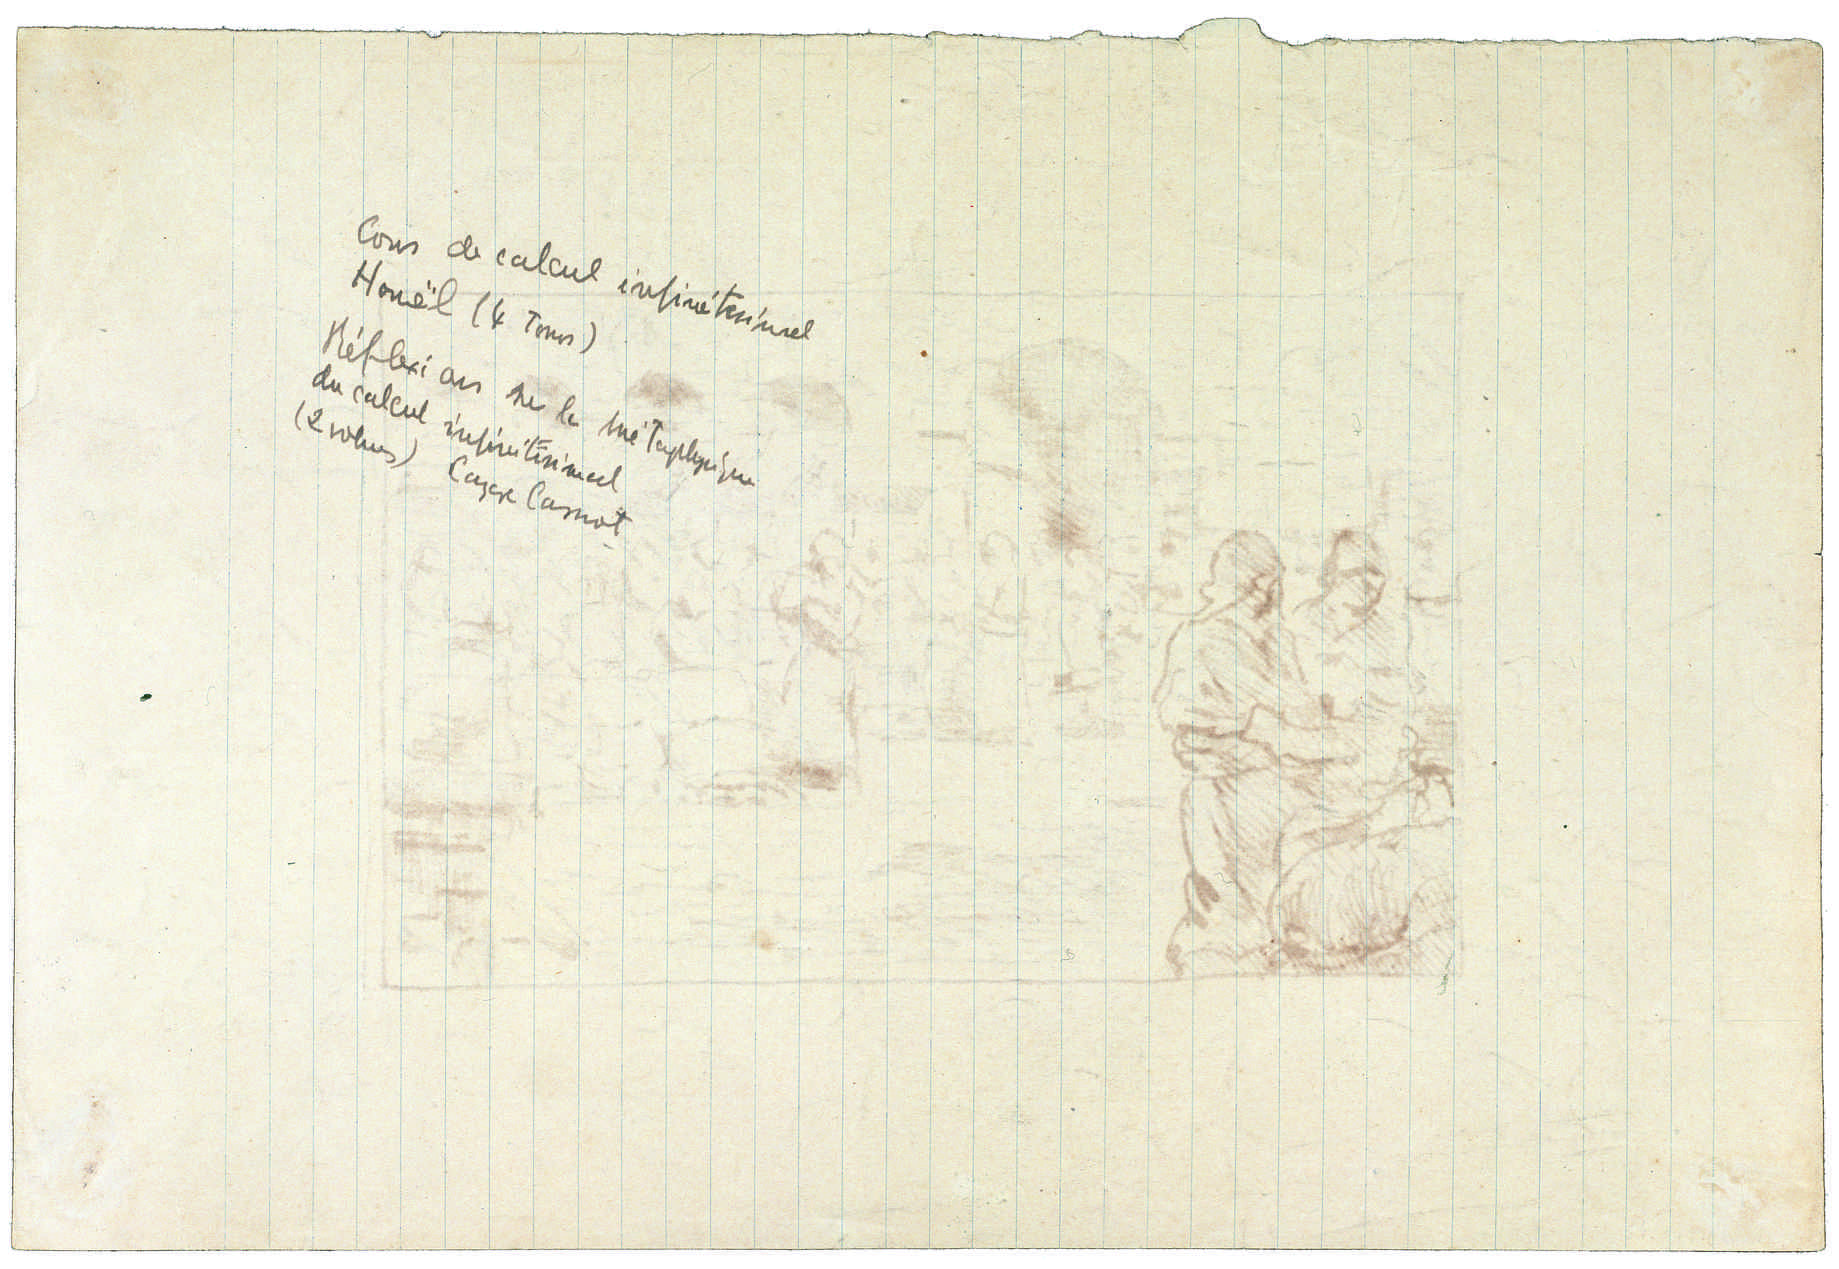 Cours de calcul infinitésimal
Houël (4 Tomes)
Réflexions sur la métaphysique
du calcul infinitésimal
(2 volumes) Lazare Carnot